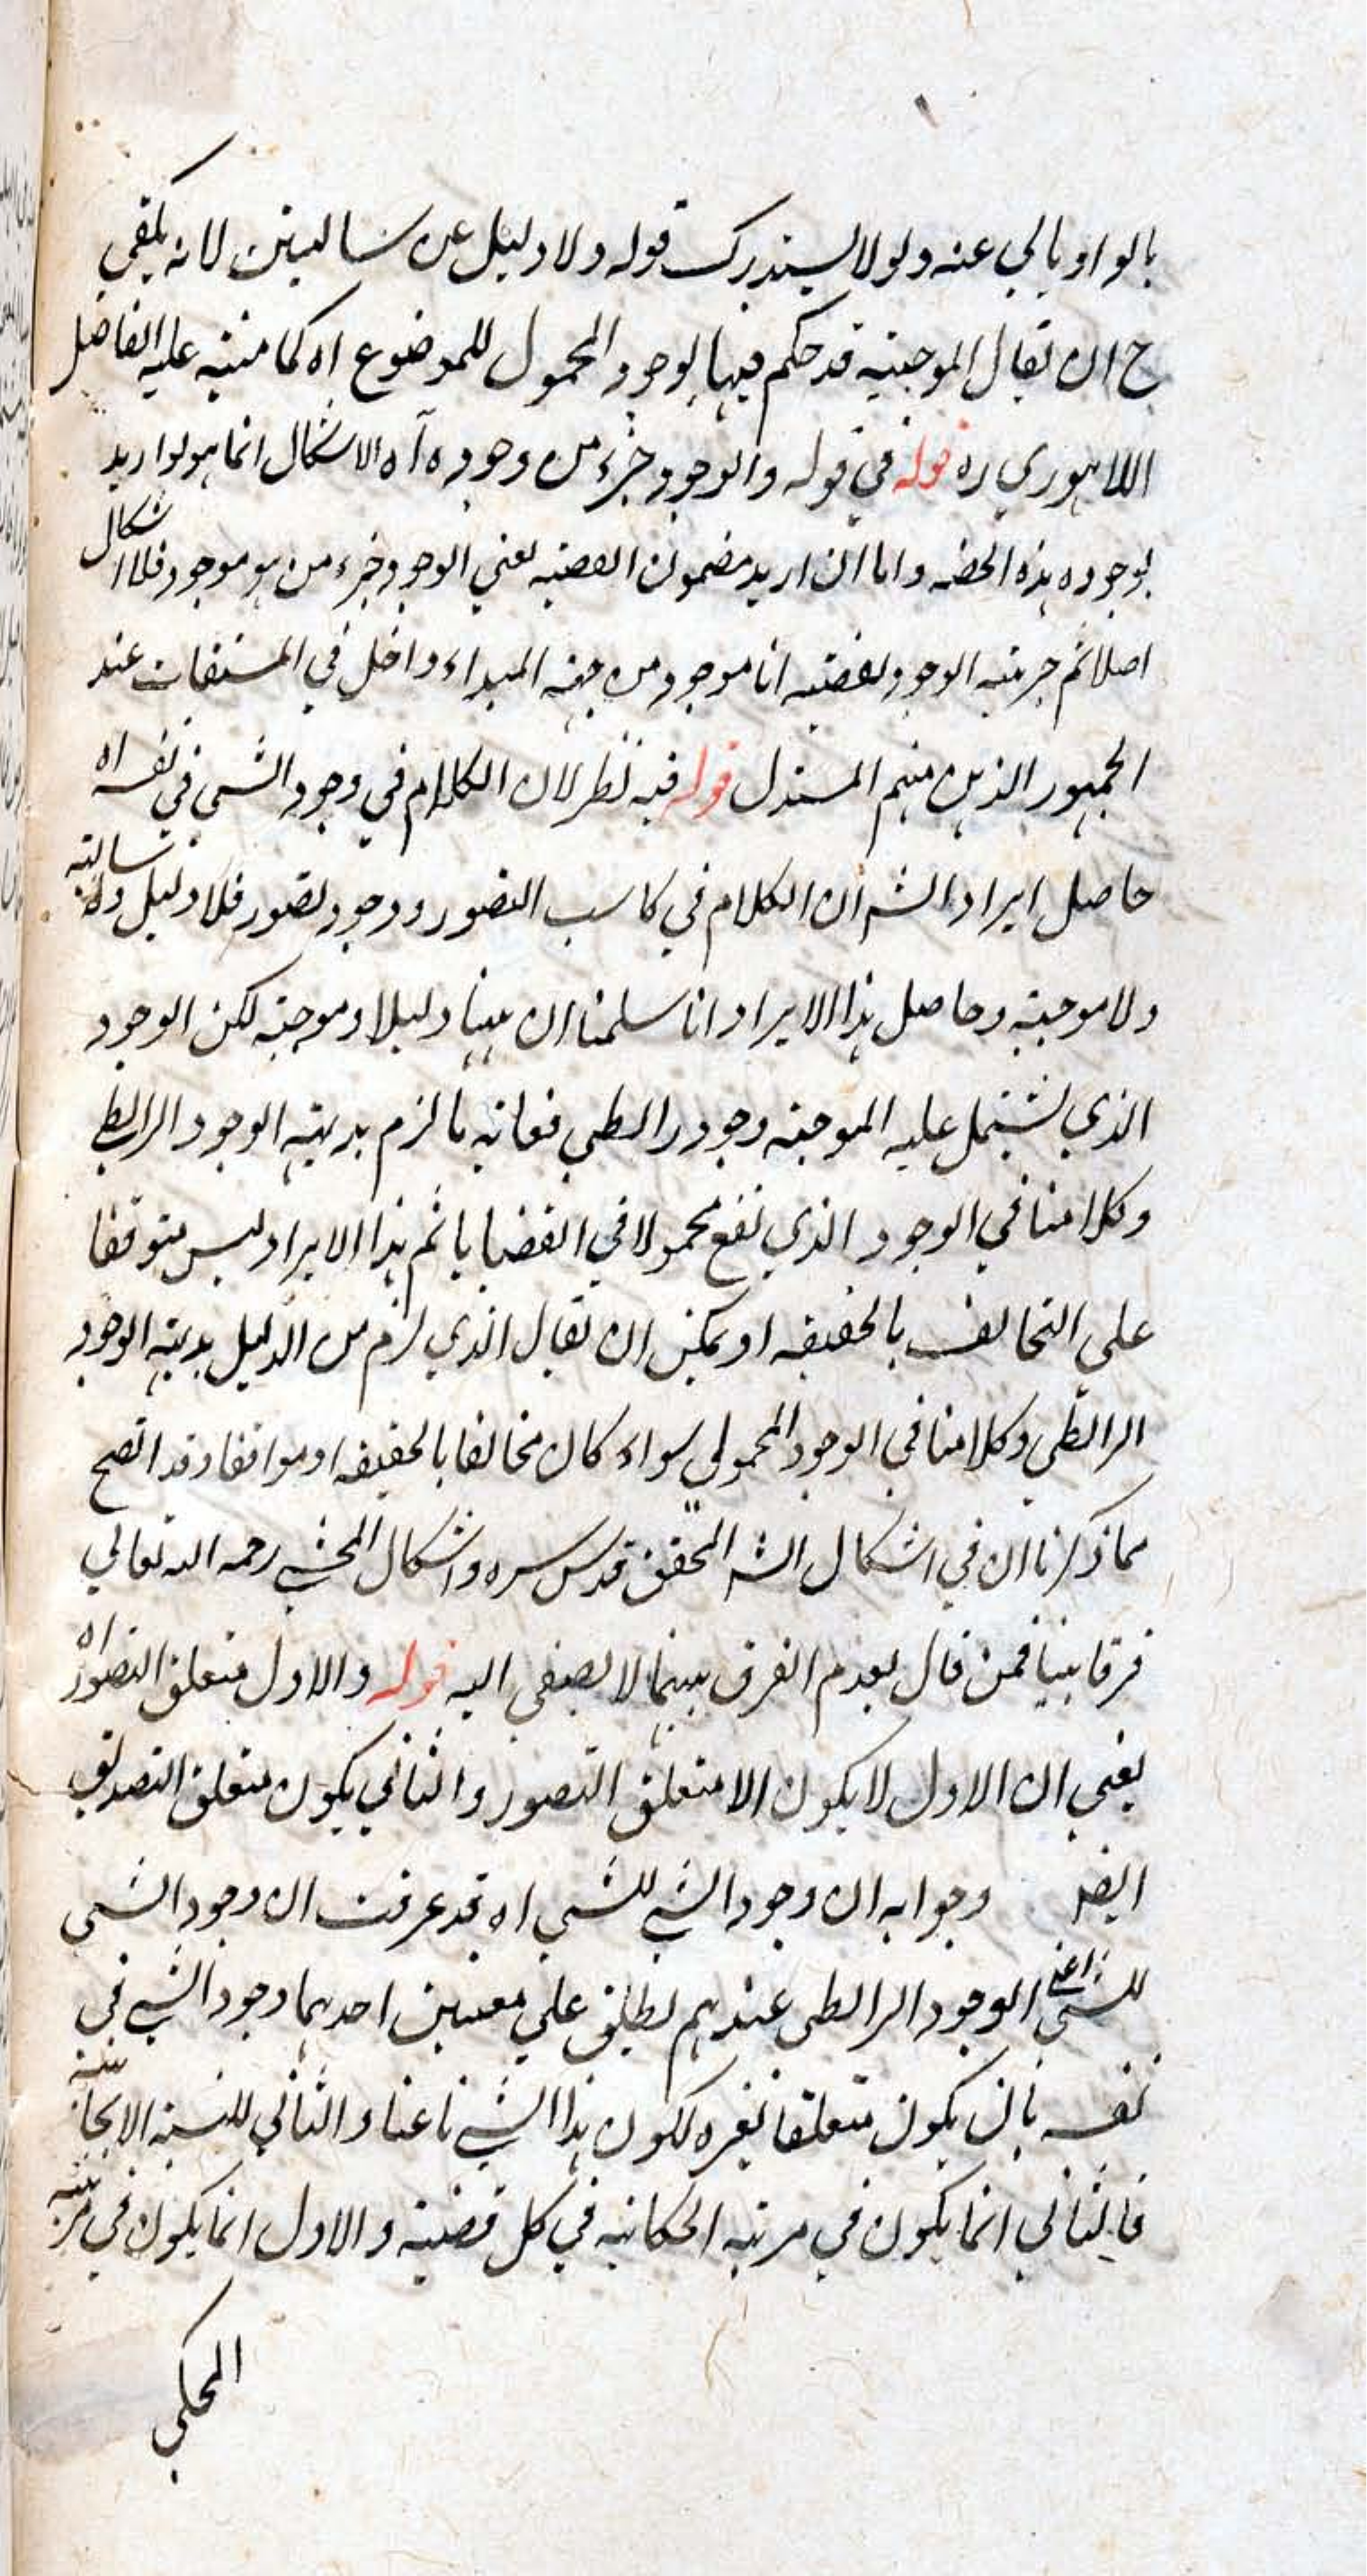 بالواو يابي عنه ولولا لیستدرک قوله ولا دليل عن سالبتين لانه يكفي
ح ان يقال الموجبة قد حكم فيها بوجود المحمول للموضوع اه كما نبه عليه الفاضل
اللاهوري ره قوله في قوله والوجود جزء من وجوده آه الاشكال انما هو لو اريد
بوجوده هذه الحصة واما ان اريد مضمون القضية يعني الوجود جزء من هو موجود فلا اشكال
اصلا ثم جزئية الوجود لقضية انا موجود من جهة المبداء داخل في المشتقات عند
الجمهور الذين منهم المستدل قوله فيه نظر لان الكلام في وجود الشي في نفسه اه
حاصل ايراد الشه ان الكلام في كاسب التصور ووجود تصور فلا دليل ولا سالبة
ولا موجبة وحاصل هذا الايراد انا سلمنا ان ههنا دليلا وموجبة لكن الوجود
الذي تشتمل عليه الموجبة وجود رابطي فغاية ما لزم بديهية الوجود الرابطي
وكلامنا في الوجود الذي يقع محمولا في القضايا ثم هذا الايراد ليس متوقفا
على التخالف بالحقيقه او يمكن ان يقال الذي لزم من الدليل بديهية الوجود
الرابطي وكلامنا في الوجود المحمولي سواء كان مخالفا بالحقيقه او موافقا وقد اتضح
مما ذكرنا ان في اشكال الشه المحقق قدس سره واشكال المحشي رحمه الله تعالي
فرقا بينا فمن قال بعدم الفرق بينهما لا يصغي اليه قوله والاول متعلق التصور اه
يعني ان الاول لا يكون الا متعلق التصور والثاني يكون متعلق التصديق
ايضا وجوابه ان وجود الشي للشي اه قد عرفت ان وجود الشي
للشي اعني الوجود الرابطي عندهم يطلق علي معنيين احدهما وجود الشي في
نفسه بان يكون متعلقا بغيره ككون هذا الشي ناعتا والثاني للنسبة الايجابية
فالثاني انما يكون في مرتبة الحكاية في كل قضية والاول انما يكون في مرتبة
المحكي